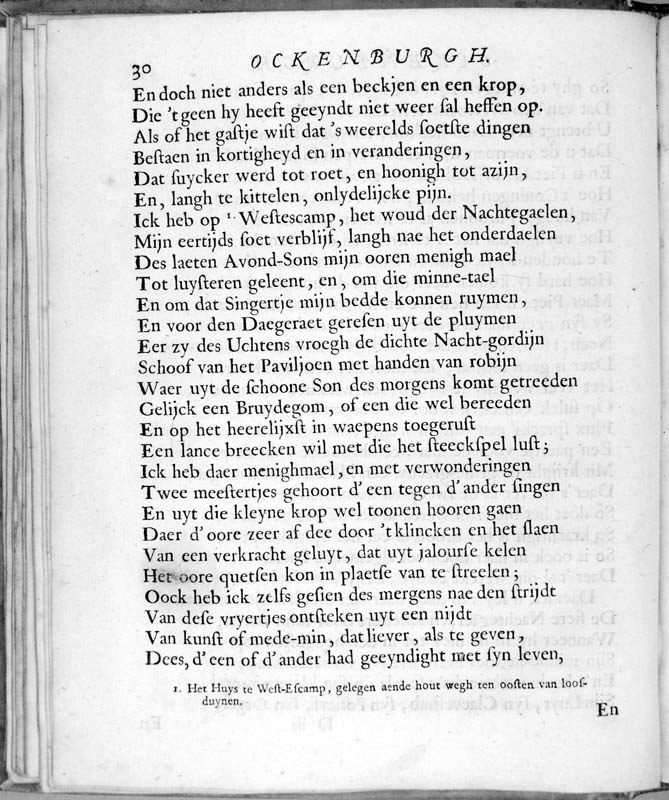 30 OCKENBURGH.
En doch niet anders als een beckjen en een krop,
Die 't geen hy heeft geeyndt niet weer ſal heffen op.
Als of het gaſtje wiſt dat 's weerelds ſoetſte dingen
Beſtaen in kortigheyd en in veranderingen,
Dat ſuycker werd tot roet, en hoonigh tot azijn,
En, langh te kittelen, onlydelijcke pijn.
Ick heb op 1. Weſtescamp, het woud der Nachtegaelen,
Mijn eertijds ſoet verblijf, langh nae het onderdaelen
Des laeten Avond-Sons mijn ooren menigh mael
Tot luyſteren geleent, en, om die minne-tael
En om dat Singertje mijn bedde konnen ruymen,
En voor den Daegeraet gereſen uyt de pluymen
Eer zy des Uchtens vroegh de dichte Nacht-gordijn
Schoof van het Paviljoen met handen van robijn
Waer uyt de ſchoone Son des morgens komt getreeden
Gelijck een Bruydegom, of een die wel bereeden
En op het heerelijxſt in waepens toegeruſt
Een lance breecken wil met die het ſteeckſpel luſt;
Ick heb daer menighmael, en met verwonderingen
Twee meeſtertjes gehoort d'een tegen d'ander ſingen
En uyt die kleyne krop wel toonen hooren gaen
Daer d'oore zeer af dee door 't klincken en het ſlaen
Van een verkracht geluyt, dat uyt jalourſe kelen
Het oore quetſen kon in plaetſe van te ſtreelen;
Oock heb ick zelfs geſien des mergens nae den ſtrijdt
Van deſe vryertjes ontſteken uyt een nijdt
Van kunſt of mede-min, dat liever, als te geven,
Dees, d'een of d'ander had geeyndight met ſyn leven,
1. Het Huys te Weſt-Eſcamp, gelegen aende hout wegh ten ooſten van looſ-
duynen.
En